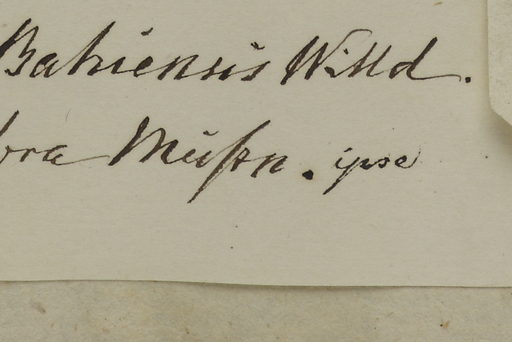 Bahiensis Willd.
ora Mußn. ipse